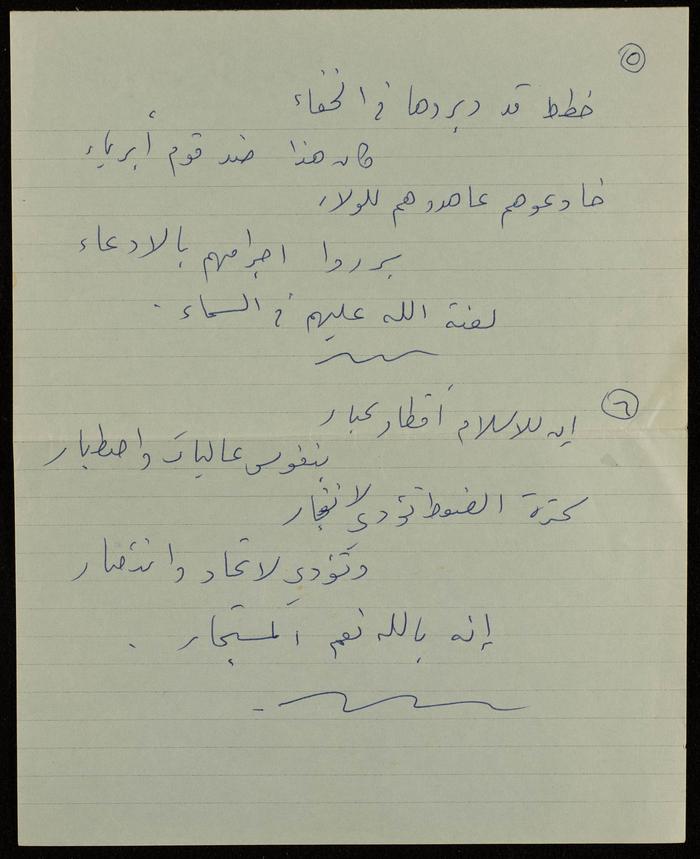 ٥
خطط قد دبروها في الخفاء
كان هذا ضد قوم أبرياء
خادعوهم عاهدوهم للولاء
برروا اجرامهم بالادعاء
لعنة الله عليهم في السماء .
٦
إن للاسلام أقطار كبار
بنفوس عاليات واصطبار
كثرة الضغط تؤدي لانفجار
وتؤدي لاتحاد وانتصار
إنه بالله نعم المستجار .